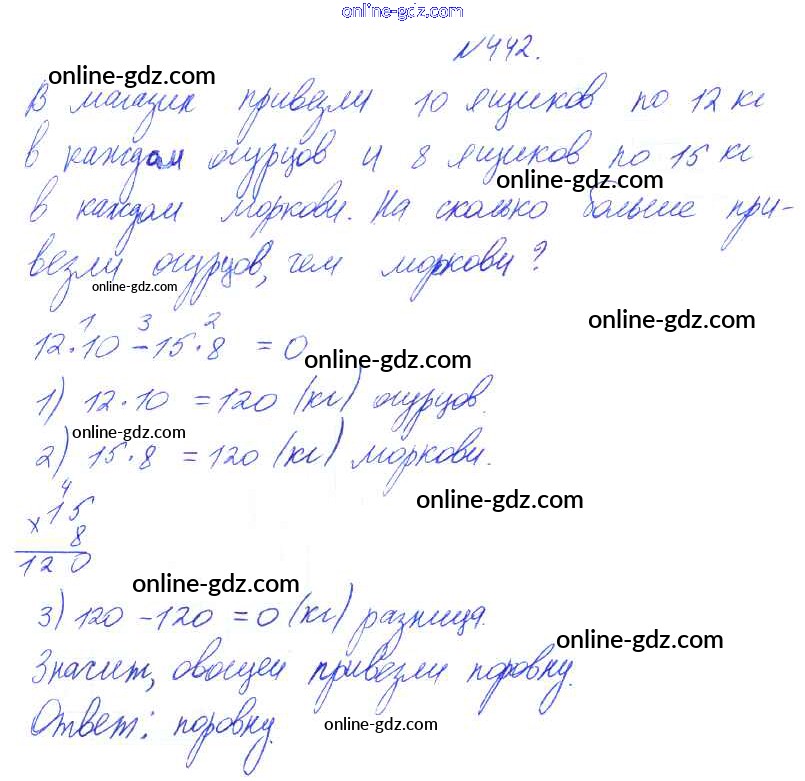 online-gdz.com
№442.
online-gdz.com
В магазин привезли 10 ящиков по 12 кг
в каждом огурцов и 8 ящиков по 15 кг
online-gdz.com
в каждом моркови. На сколько больше при-
везли огурцов, чем моркови?
online-gdz.com
online-gdz.com
1 3 2
12·10 – 15·8 = 0
online-gdz.com
1) 12·10 = 120 (кг) огурцов.
online-gdz.com
2) 15·8 = 120 (кг) моркови.
4
×15
online-gdz.com
8
120
online-gdz.com
3) 120 – 120 = 0 (кг) разница.
online-gdz.com
Значит, овощей привезли поровну.
Ответ: поровну.
online-gdz.com